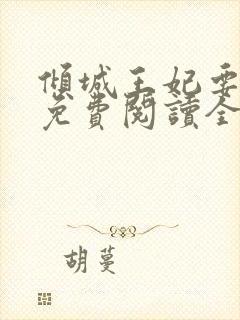 傾城王妃要
免費閱讀全
胡蔓